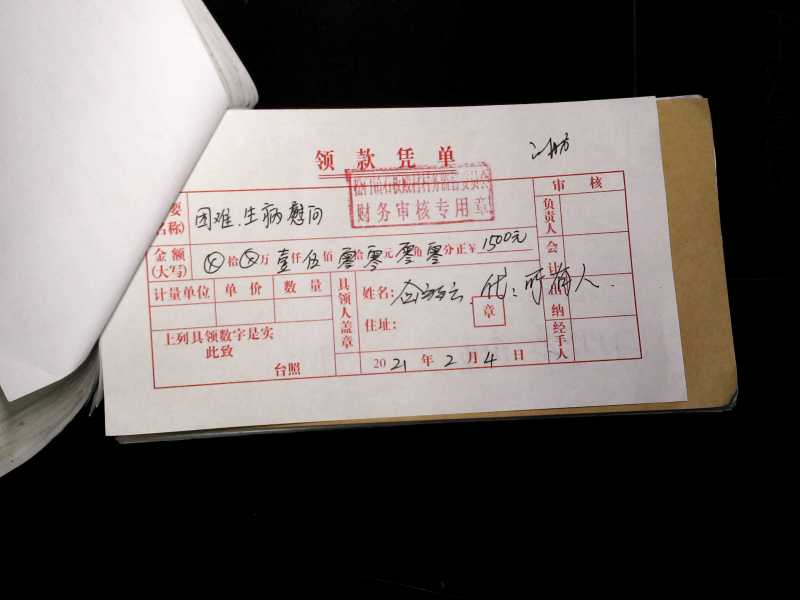 领款凭单
财务审核专用章
要
名称)
困难.生病慰问
审核
金额
(大写)
ⓧ拾ⓧ万壹仟伍佰零拾零元零角零分正￥1500元
计量单位 单价 数量
上列具领数字是实
此致
台照
具领人盖章
姓名:
代:
人.
章
住址:
2021年2月4日
负责人
会计
纳
经手人